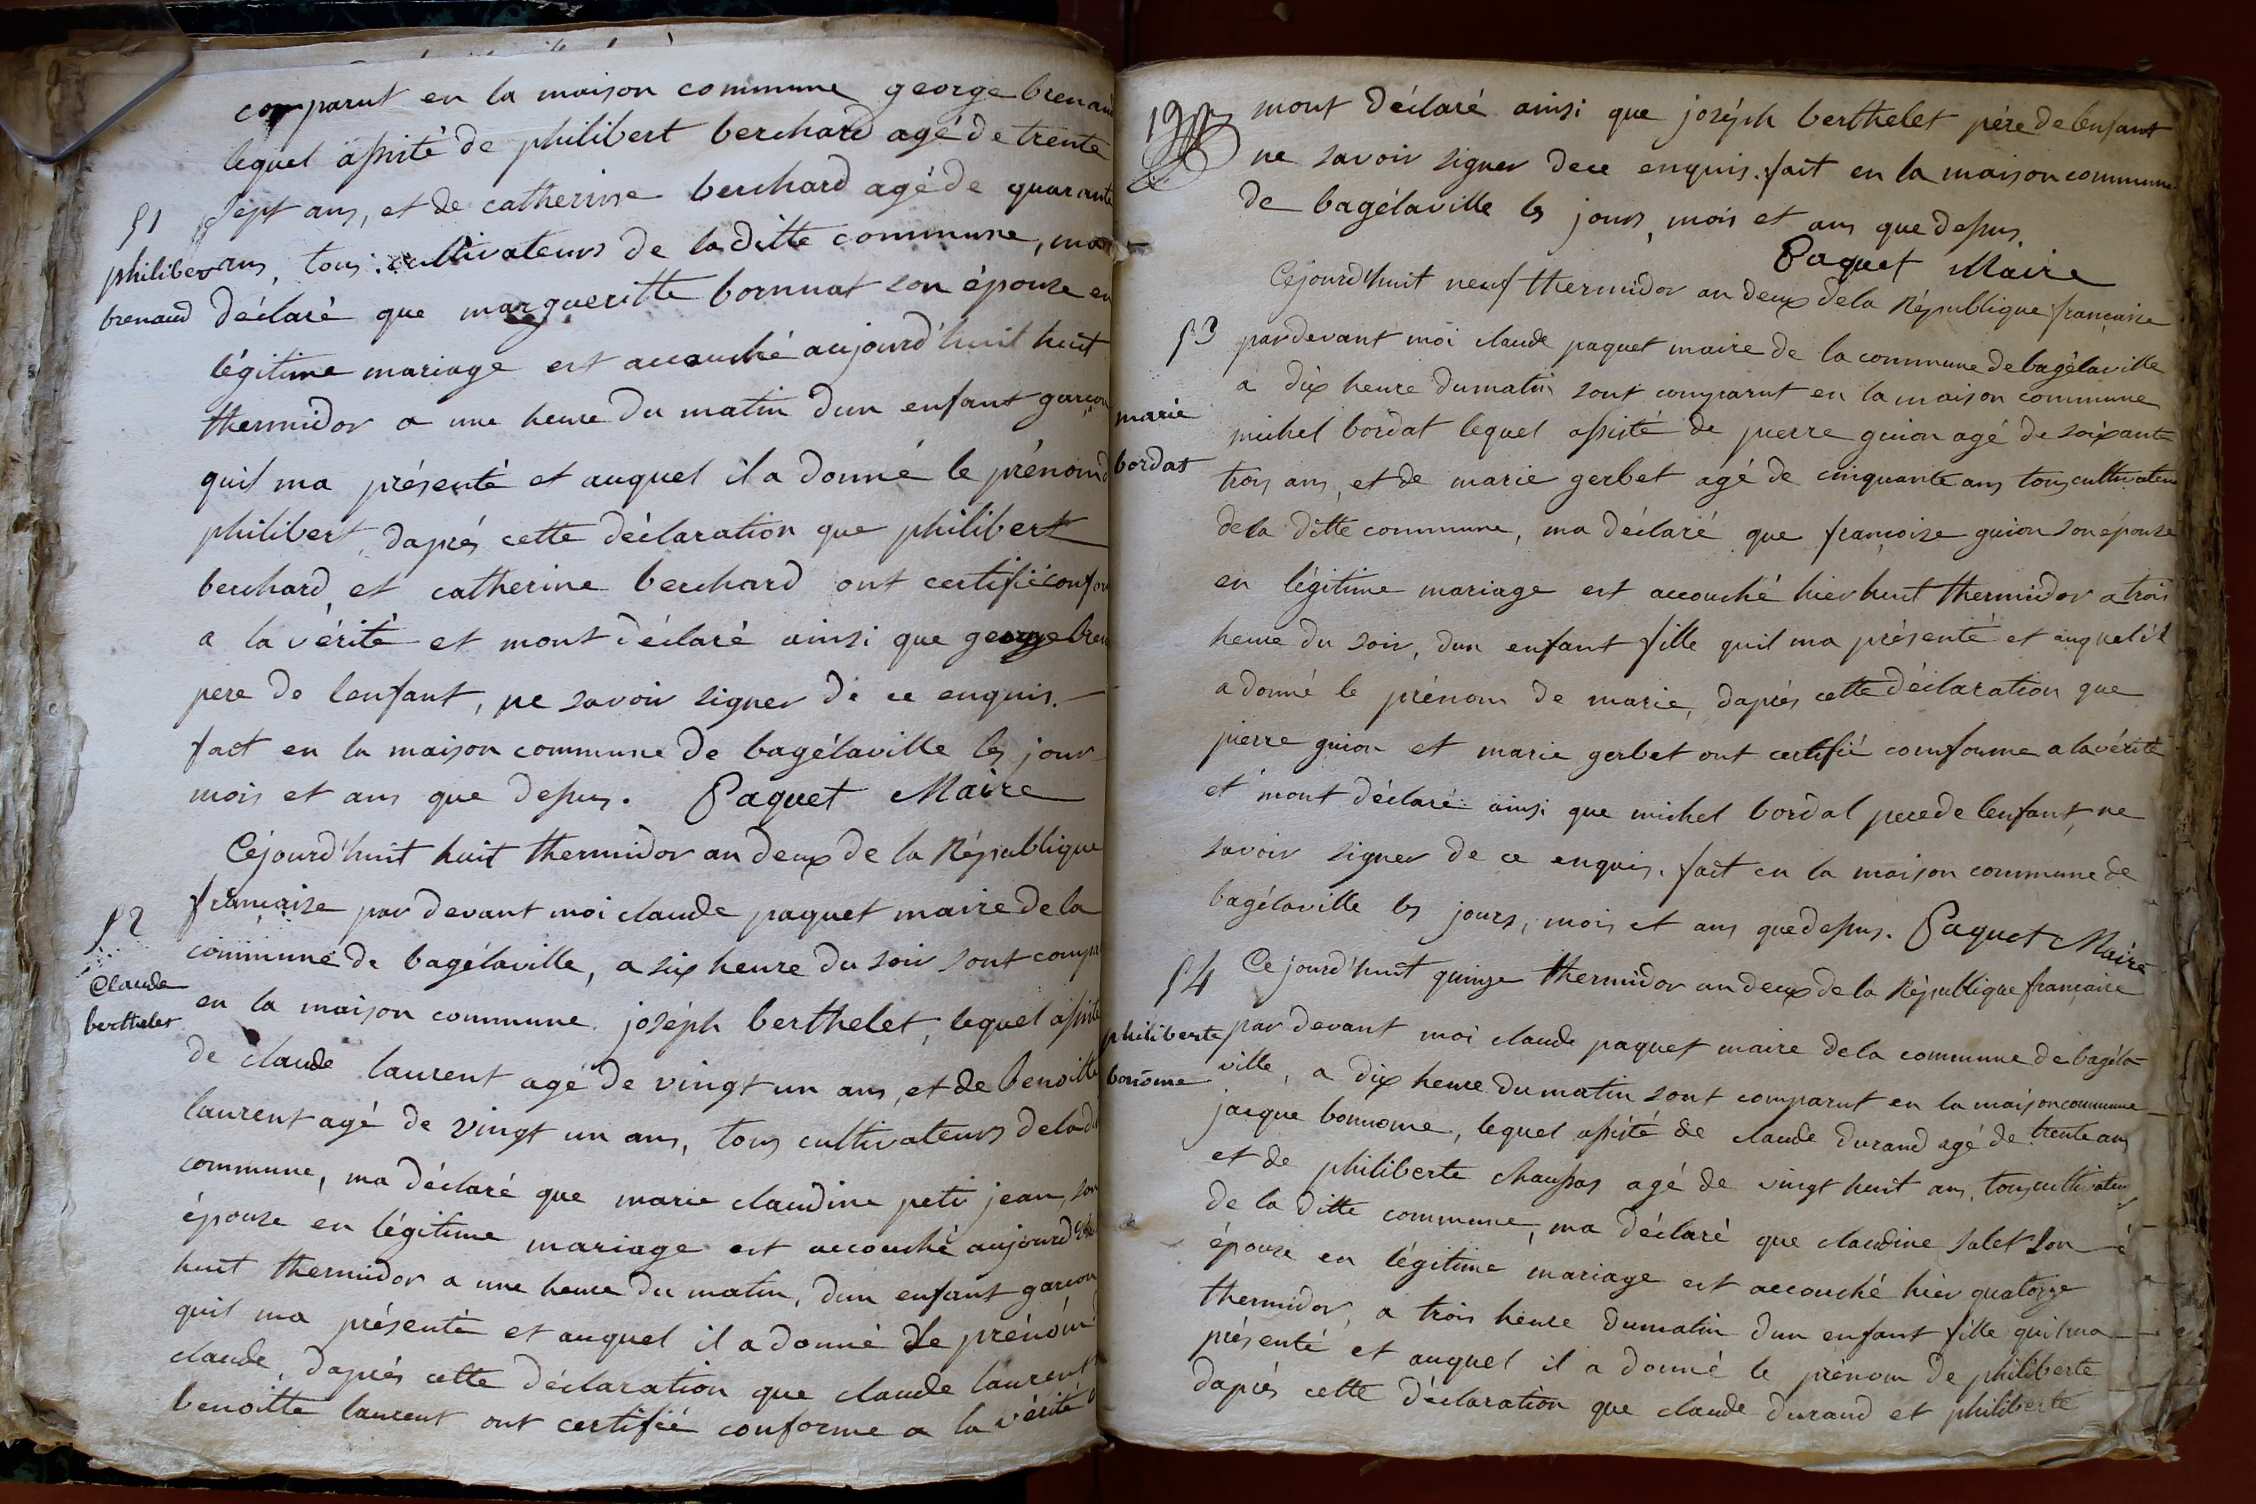 comparut en la maison commune george brenaud
lequel assisté de philibert berchard agé de trente
sept ans, et de catherine berchard agé de quarante
51
philibert
brenaud
ans, tous cultivateurs de la ditte commune, ma
déclaré que margueritte bornuat son épouse en
légitime mariage est accouché aujourd'huit huit
thermidor a une heure du matin dun enfant garçon
quil ma présenté et auquel il a donné le prénom d
philibert, daprés cette déclaration que philibert
berchard, et catherine berchard ont certifié confor
a la vérité et mont déclaré ainsi que george bren
pere de lenfant, ne savoir signer de ce enquis.
fait en la maison commune de bagélaville les jour
mois et ans que dessus. Paquet Maire
Céjourd'huit huit thermidor an deux de la République
52
Claude
berthelet
françaize par devant moi claude paquet maire de la
commune de bagélaville, a six heure du soir sont compa
en la maison commune joséph berthelet, lequel assisté
de claude laurent agé de vingt un ans, et de benoitte
laurent agé de vingt un ans, tous cultivateurs de la d
commune, ma déclaré que marie claudine peti jean, son
épouze en légitime mariage est accouché aujourd'hui
huit thermidor a une heure du matin, dun enfant garçon
quil ma présenté et auquel il a donné le prénom
claude, daprés cette déclaration que claude laurent
benoitte laurent ont certifié conforme a la vérité
mont déclaré ainsi que joséph berthelet pére de lenfant
ne savoir signer de ce enquis. fait en la maison commune
de bagélaville les jours, mois et ans que dessus.
Paquet Maire
Céjourd'huit neuf thermidor an deux de la République françaize
53
marie
bordat
par devant moi claude paquet maire de la commune de bagélaville
a dix heure du matin sont comparut en la maison commune
michel bordat lequel assisté de pierre guion agé de soixante
trois ans, et de marie gerbet agé de cinquante ans tous cultivateurs
de la ditte commune, ma déclaré que françoize guion son épouze
en légitime mariage est accouché hier huit thermidor a trois
heure du soir, dun enfant fille quil ma présenté et auquel il
a donné le prénom de marie, daprés cette déclaration que
pierre guion et marie gerbet ont certifié comforme a la vérité
et mont déclaré ainsi que michel bordat pere de lenfant, ne
savoir signer de ce enquis. fait en la maison commune de
bagélaville les jours, mois et ans que dessus. Paquet Maire
54
philiberte
bonnome
Ce jourd'huit quinze thermidor an deux de la République françaize
par devant moi claude paquet maire de la commune de bagéla-
ville, a dix heure du matin sont comparut en la maison commune
jacque bonnome, lequel assisté de claude durand agé de trente ans
et de philiberte chaussas agé de vingt huit ans, tous cultivateurs
de la ditte commune, ma déclaré que claudine salet son
épouze en légitime mariage est accouché hier quatorze
thermidor, a trois heure du matin dun enfant fille quil ma
présenté et auquel il a donné le prénom de philiberte
daprés cette déclaration que claude durand et philiberte